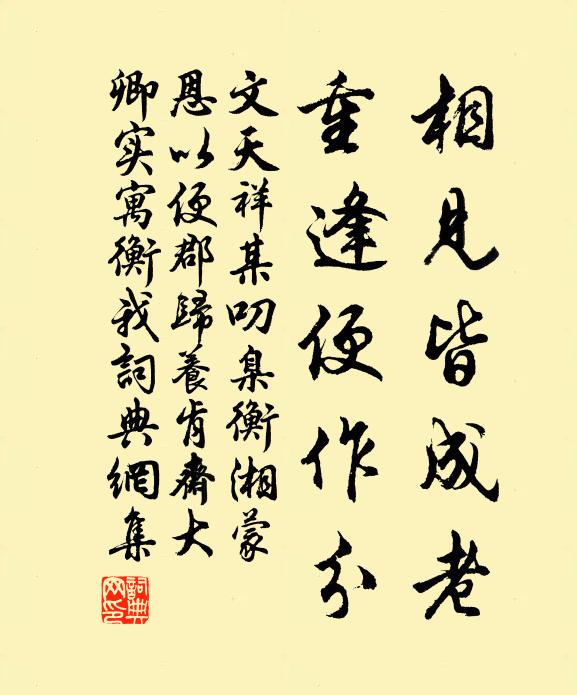 相見皆成老
重逢便作分
文天祥某叨臬衡湘蒙
恩以便郡歸養肯齋大
卿实寓衡我詞典網集
詞典網印